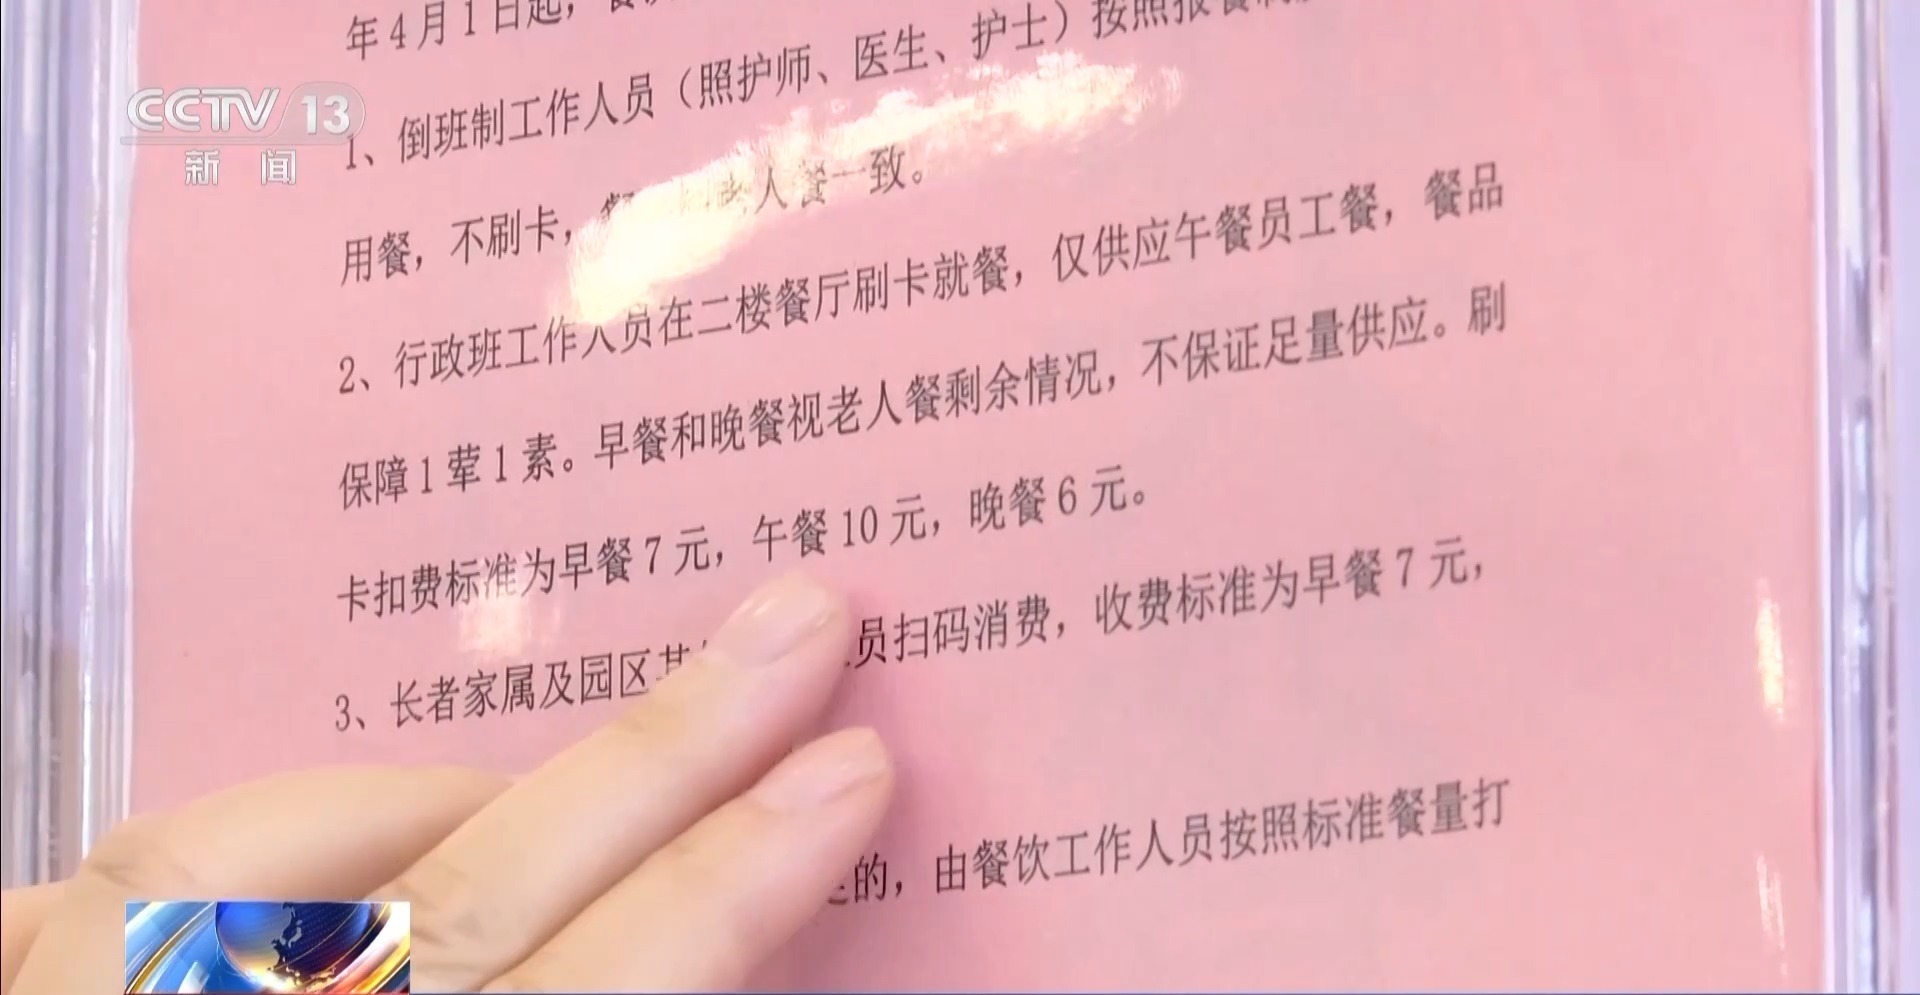 年4月1日起，餐
CCTV 13
新闻
1、倒班制工作人员（照护师、医生、护士）按照报餐制度
用餐，不刷卡，餐 人餐一致。
2、行政班工作人员在二楼餐厅刷卡就餐，仅供应午餐员工餐，餐品
保障1荤1素。早餐和晚餐视老人餐剩余情况，不保证足量供应。刷
卡扣费标准为早餐7元，午餐10元，晚餐6元。
3、长者家属及园区其 员扫码消费，收费标准为早餐7元，
的，由餐饮工作人员按照标准餐量打